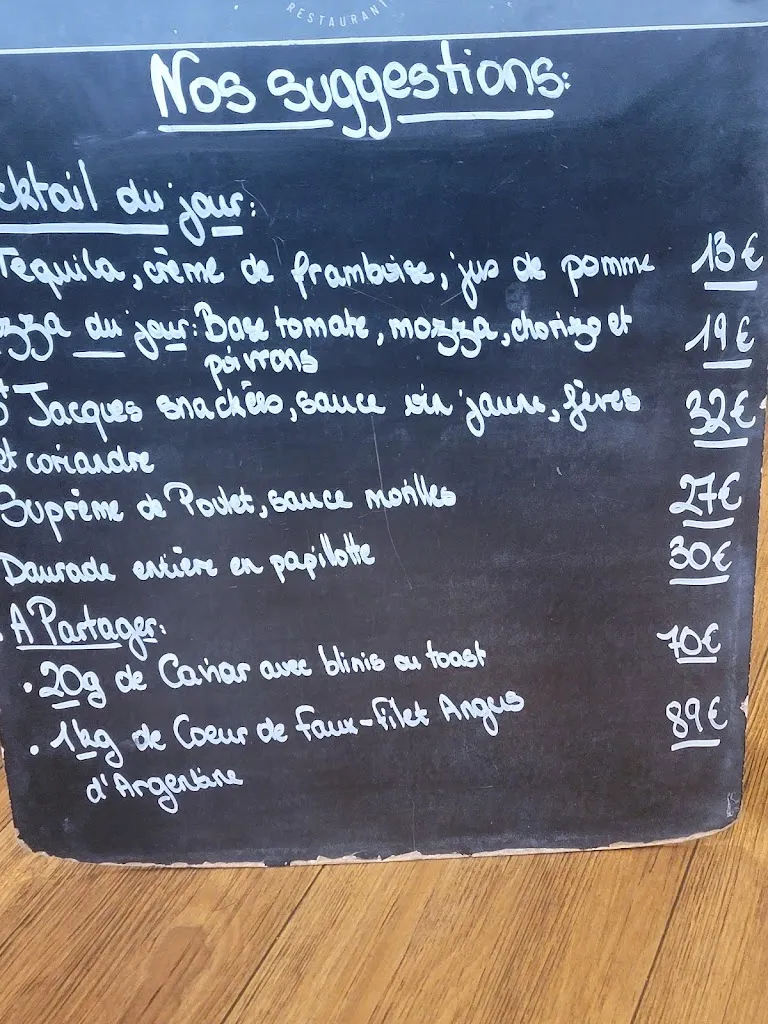 RESTAURANT
Nos suggestions:
cktail du jour:
Tequila, crème de framboise, jus de pomme 13€
zza du jour: Base tomate, mozza, chorizo et 19€
poivrons
St Jacques snackées, sauce vin jaune, fèves 32€
et coriandre
Suprême de Poulet, sauce morilles 27€
Daurade entière en papillotte 30€
A Partager:
. 20g de Caviar avec blinis ou toast 70€
. 1kg de Coeur de Faux-Filet Angus 89€
d'Argentine